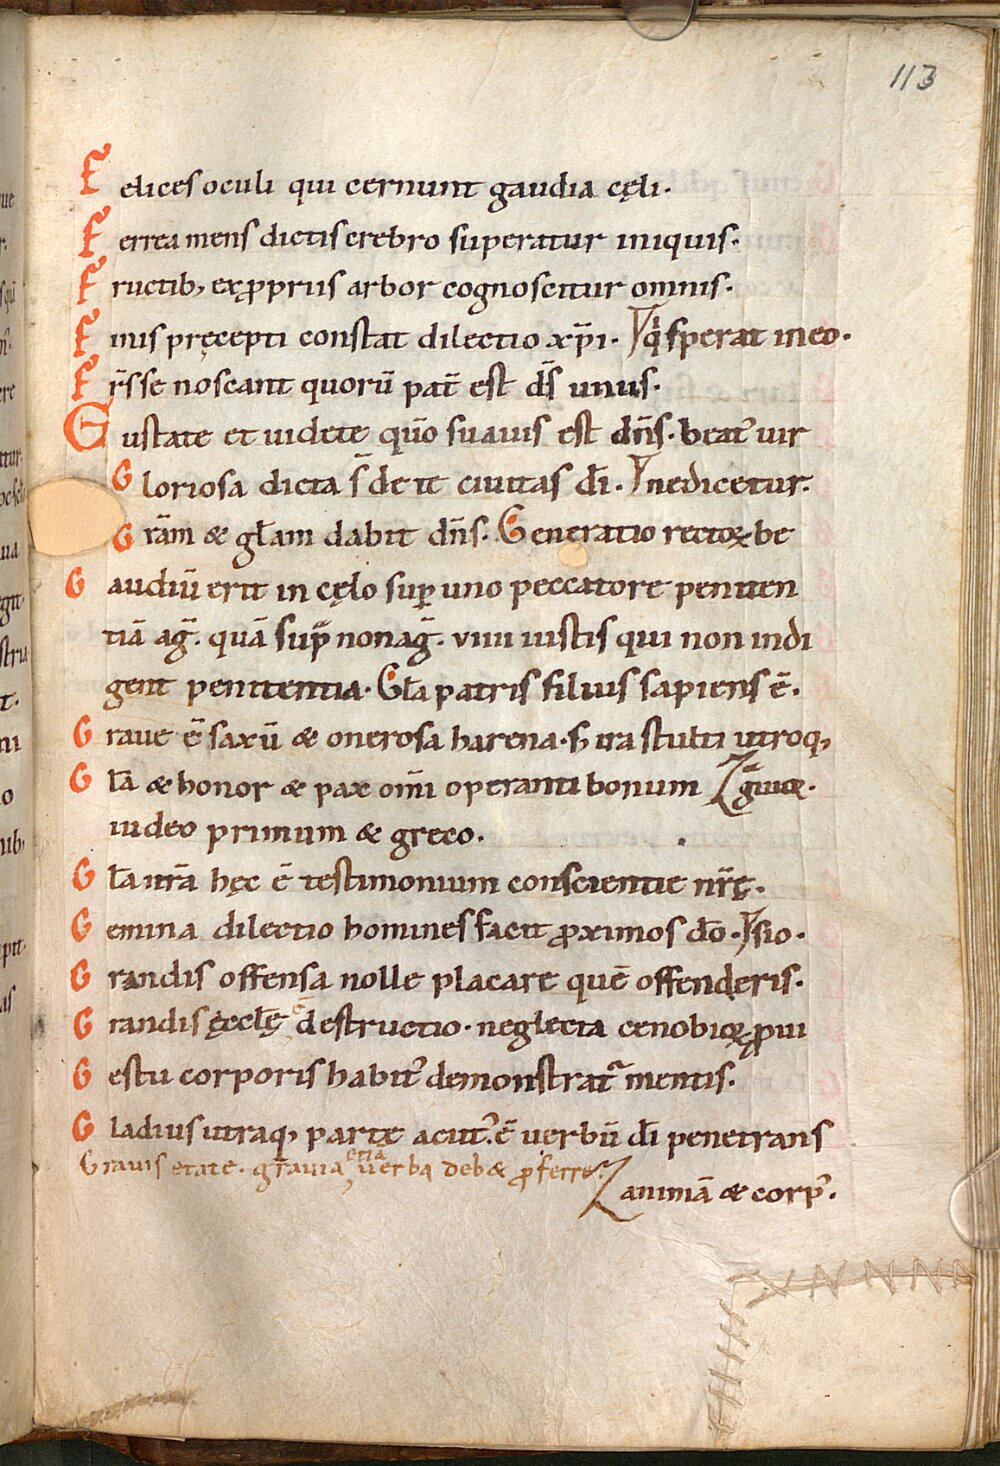 113
Felices oculi qui cernunt gaudia cęli.
Ferrea mens dictis crebro superatur iniquis.
Fructib; ex ꝓpriis arbor cognoscitur omnis.
Finis pręcepti constat dilectio xp̄i. qͥ sperat in eo.
Fr̄s se noscant quorū pat̄ est d̄s unus.
Gustate et uidete quō suauis est dn̄s. beat᷒ uir
Gloriosa dicta s̄ de te ciuitas dī. nedicetur.
Grām & gl̄am dabit dn̄s. Generatio rectoꝝ be
Gaudiū erit in cęlo suꝑ uno peccatore peniten
tiā aḡ. quā sup̄ nonaḡ. viiii iustis qui non indi
gent penitentia. Gl̄a patris filius sapiens ē.
Graue ē saxū & onerosa harena. ꞩ ira stulti utroq;
Gl̄a & honor & pax om̄i operanti bonum
iudeo primum & greco.
Gl̄a nr̄a hęc ē testimonium conscientie nr̄ę.
Gemina dilectio homines facit ꝓximos dō. sio.
Grandis offensa nolle placare quē offenderis.
Grandis ęccl̄ę ē destructio. neglecta cenobioꝝ ꝓui
Gestu corporis habit᷒ demonstrat᷒ mentis.
Gladius utraq; parte acut᷒. ē uerbū dī penetrans
Grauis etate. grauia etiā uerba deb& ꝓferre.
animā & corp᷒.